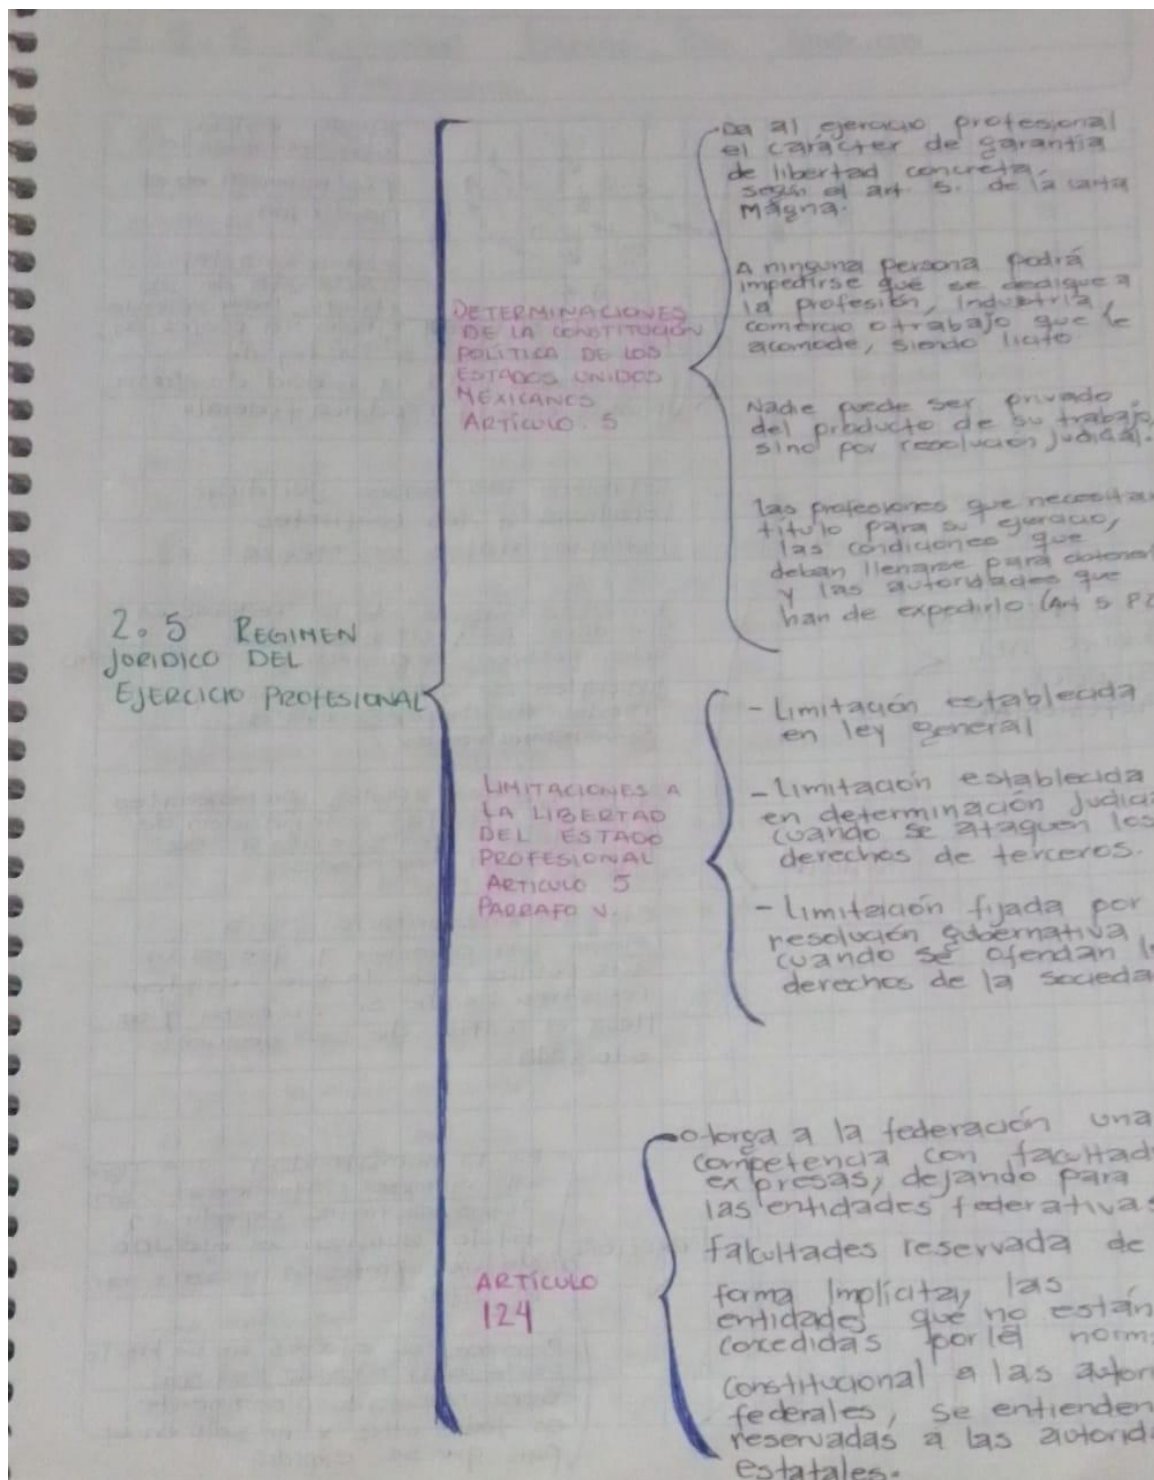 2.5 REGIMEN
JORIDICO DEL
EJERCICIO PROFESIONAL
DETERMINACIONES
DE LA CONSTITUCIÓN
POLÍTICA DE LOS
ESTADOS UNIDOS
MEXICANOS
ARTÍCULO. 5
Da al ejercicio profesional
el carácter de garantía
de libertad concreta,
según el art 5. de la carta
Mágna.
A ninguna persona podrá
impedirse que se dedique a
la profesión, Industria,
comercio o trabajo que le
acomode, siendo licito
Nadie puede ser privado
del producto de su trabajo,
sino por resolución judicial.
las profesiones que necesitan
título para su ejercicio,
las condiciones que
deban llenarse para obtener
y las autoridades que
han de expedirlo (Art 5 P2
LIMITACIONES A
LA LIBERTAD
DEL ESTADO
PROFESIONAL
ARTICULO 5
PARRAFO V.
- Limitación establecida
en ley general
- Limitación establecida
en determinación Judicia
cuando se ataquen los
derechos de terceros.
- Limitación fijada por
resolución gubernativa
cuando se ofendan l
derechos de la socieda
ARTÍCULO
124
otorga a la federación una
competencia con facultad
expresas, dejando para
las entidades federativas
falcultades reservada de
forma Implícita, las
entidades que no están
concedidas por la norm
constitucional a las autor
federales, se entienden
reservadas a las autorid
estatales.